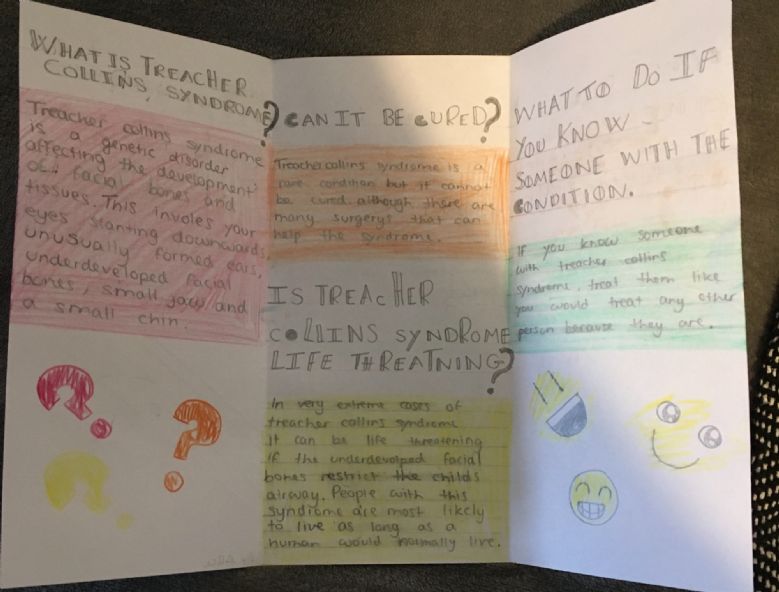 WHAT IS TREACHER
COLLINS, SYNDROME?
Treacher collins syndrome
is a genetic disorder
affecting the development
of facial bones and
tissues. This involes your
eyes slanting downwards
unusually formed ears,
underdeveloped facial
bones, small jaw and
a small chin.
CAN IT BE CURED?
Treacher collins syndrome is a
rare condition but it cannot
be cured although there are
many surgerys that can
help the syndrome.
IS TREACHER
COLLINS SYNDROME
LIFE THREATNING?
In very extreme cases of
treacher collins syndrome
it can be life threatening
if the underdevolped facial
bones restrict the childs
airway. People with this
syndrome are most likely
to live as long as a
human would normally live.
WHAT TO DO IF
YOU KNOW
SOMEONE WITH THE
CONDITION.
If you know someone
with treacher collins
syndrome, treat them like
you would treat any other
person because they are.